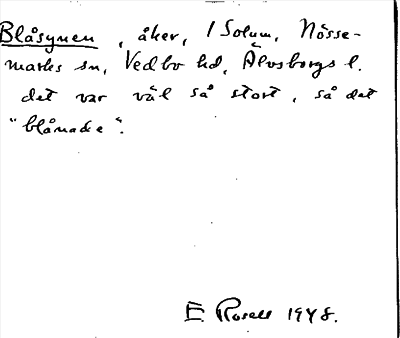 Blåsynen, åker, 1 Solum, Nösse-
marks sn, Vedbo hd, Älvsborgs l.
det var väl så stort, så det
"blånade".
E Rosell 1948.